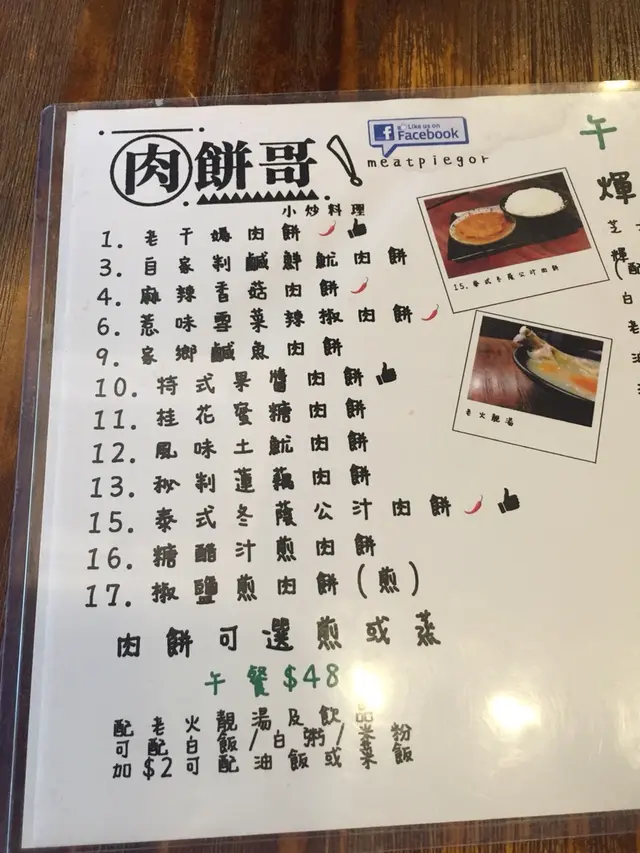 肉餅哥!
Like us on
Facebook
meatpiegor
小炒料理
1. 老干媽肉餅
3. 自家制鹹鮮魷肉餅
4. 麻辣香菇肉餅
6. 惹味雪菜辣椒肉餅
9. 家鄉鹹魚肉餅
10. 特式果醬肉餅
11. 桂花蜜糖肉餅
12. 風味土魷肉餅
13. 秘制蓮藕肉餅
15. 泰式冬蔭公汁肉餅
16. 糖醋汁煎肉餅
17. 椒鹽煎肉餅(煎)
肉餅可選煎或蒸
午餐$48
配老火靚湯及飲品
可配白飯/白粥/米粉
加$2可配油飯或菜飯
15. 泰式冬蔭公汁肉餅
老火靚湯
午
輝
芝
輝
(配
白
老
油